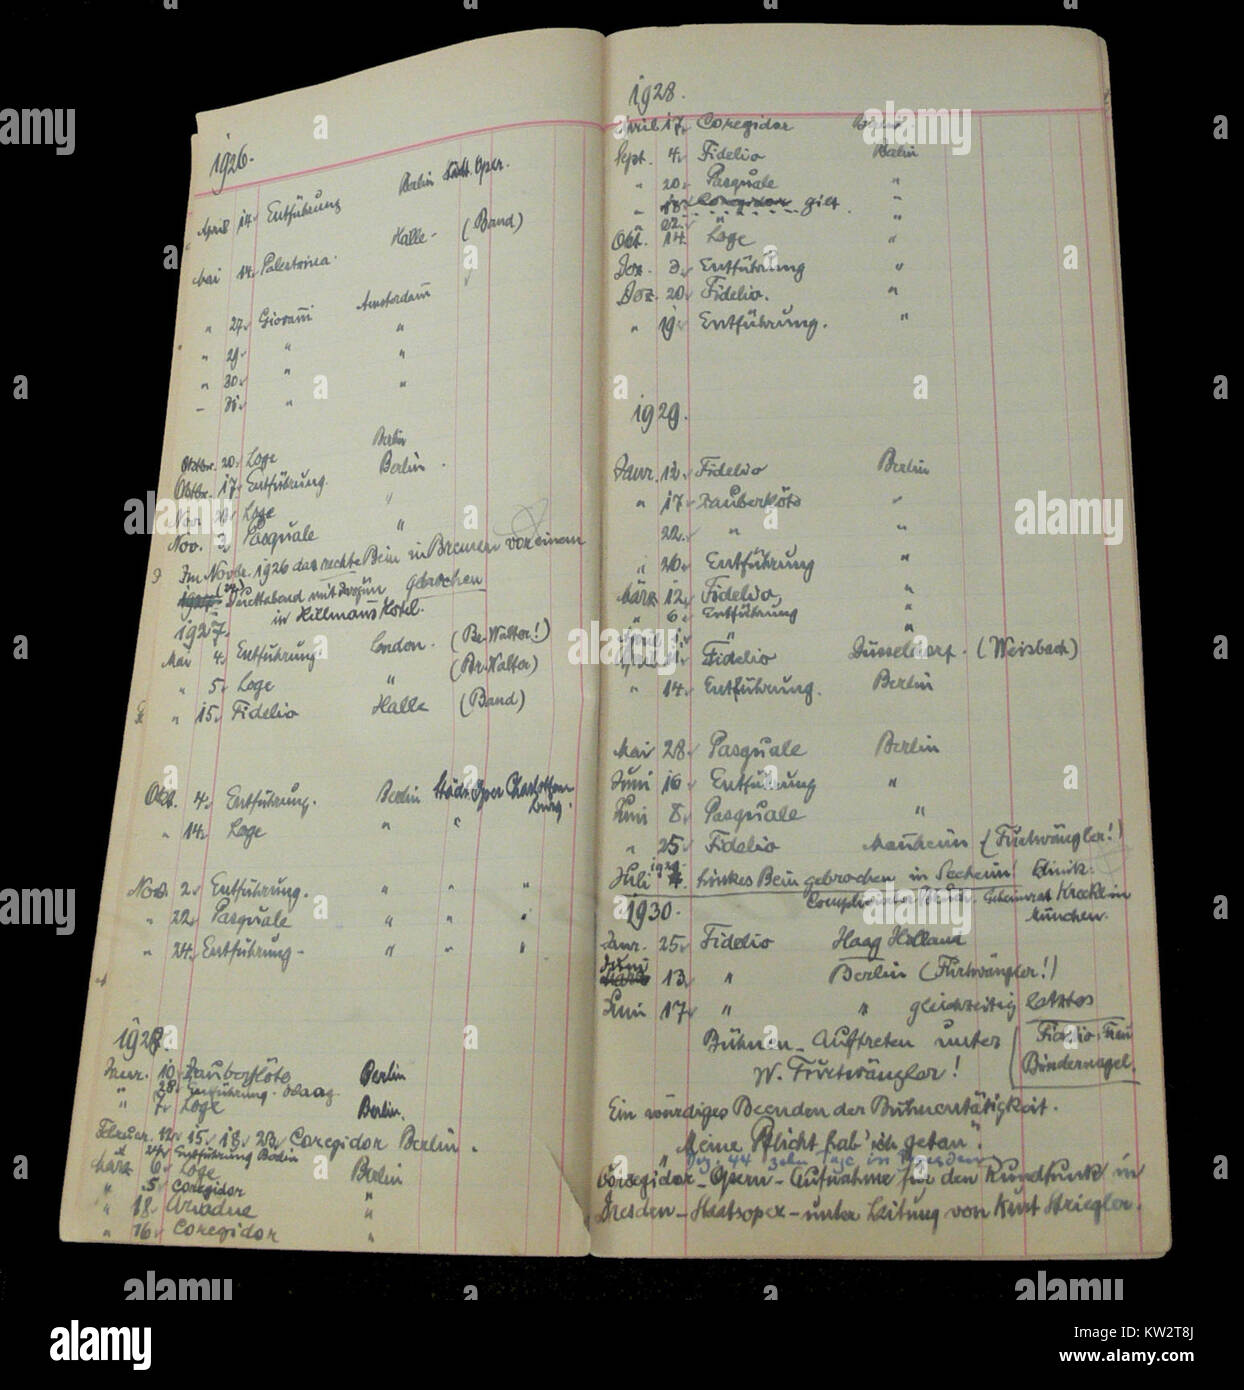 1926.
Berlin Städt. Oper.
April 14. Entführung
Halle - (Band)
Mai 14. Palestrina.
Amsterdam
" 27. Giovanni "
" 29. " "
" 30. " "
"
Berlin
Oktbr. 20. Loge Berlin.
Oktbr. 17. Entführung. "
Nov. Loge "
Nov. 3. Pasquale
Im Novbr. 1926 das rechte Bein in Bremen vor einem
Duettabend mit Ivogün gebrochen
in Hillmanns Hotel.
1927.
Mai 4. Entführung. London. (Br. Walter!)
" 5. Loge " (Br. Walter)
" 15. Fidelio Halle (Band)
Okt. 4. Entführung. Berlin Städt. Oper Charlotten
burg.
" 14. Loge " "
Nov. 2. Entführung. " " "
" 22. Pasquale " " "
" 24. Entführung - " " "
1928.
Janr. 10. Zauberflöte Berlin
" 28. Entführung - Haag
" 7. Loge Berlin.
Februar. 12. 15. 18. 23. Coregidor Berlin.
" 24. Entführung Berlin
März 6. Loge Berlin
" 5. Coregidor "
" 18. Ariadne "
" 16. Coregidor "
1928.
April 17. Coregidor Berlin.
Sept. 4. Fidelio Berlin
" 20. Pasquale "
" 18. Coregidor gilt. "
22. "
Okt. 14. Loge "
Dez. 3. Entführung "
Dez. 20. Fidelio. "
" 19. Entführung. "
1929.
Janr. 12. Fidelio Berlin
" 17. Zauberflöte "
22. " "
" 26. Entführung "
März 12. Fidelio, "
" 6. Entführung "
April 1. " "
April Fidelio Düsseldorf. (Weisbach)
" 14. Entführung. Berlin
Mai 28. Pasquale Berlin
Juni 16. Entführung "
Juni 8. Pasquale "
" 25. Fidelio Mannheim (Furtwängler!)
Juli 1929 linkes Bein gebrochen in Seeheim! Klinik:
Geheimrat Krecke in
1930. München.
Janr. 25. Fidelio Haag Holland
Juni 13. " Berlin (Furtwängler!)
Juni 17. " " gleichzeitig letztes
Bühnen - Auftreten unter (Fidelio: Frau
W. Furtwängler! Bindernagel.
Ein würdiges Beenden der Bühnentätigkeit.
"Meine Pflicht hab' ich getan".
Coregidor - Opern - Aufnahme für den Rundfunk in
Dresden - Staatsoper - unter Leitung von Kurt Striegler.
alamy
a
alamy
Image ID: KW2T8J
www.alamy.com